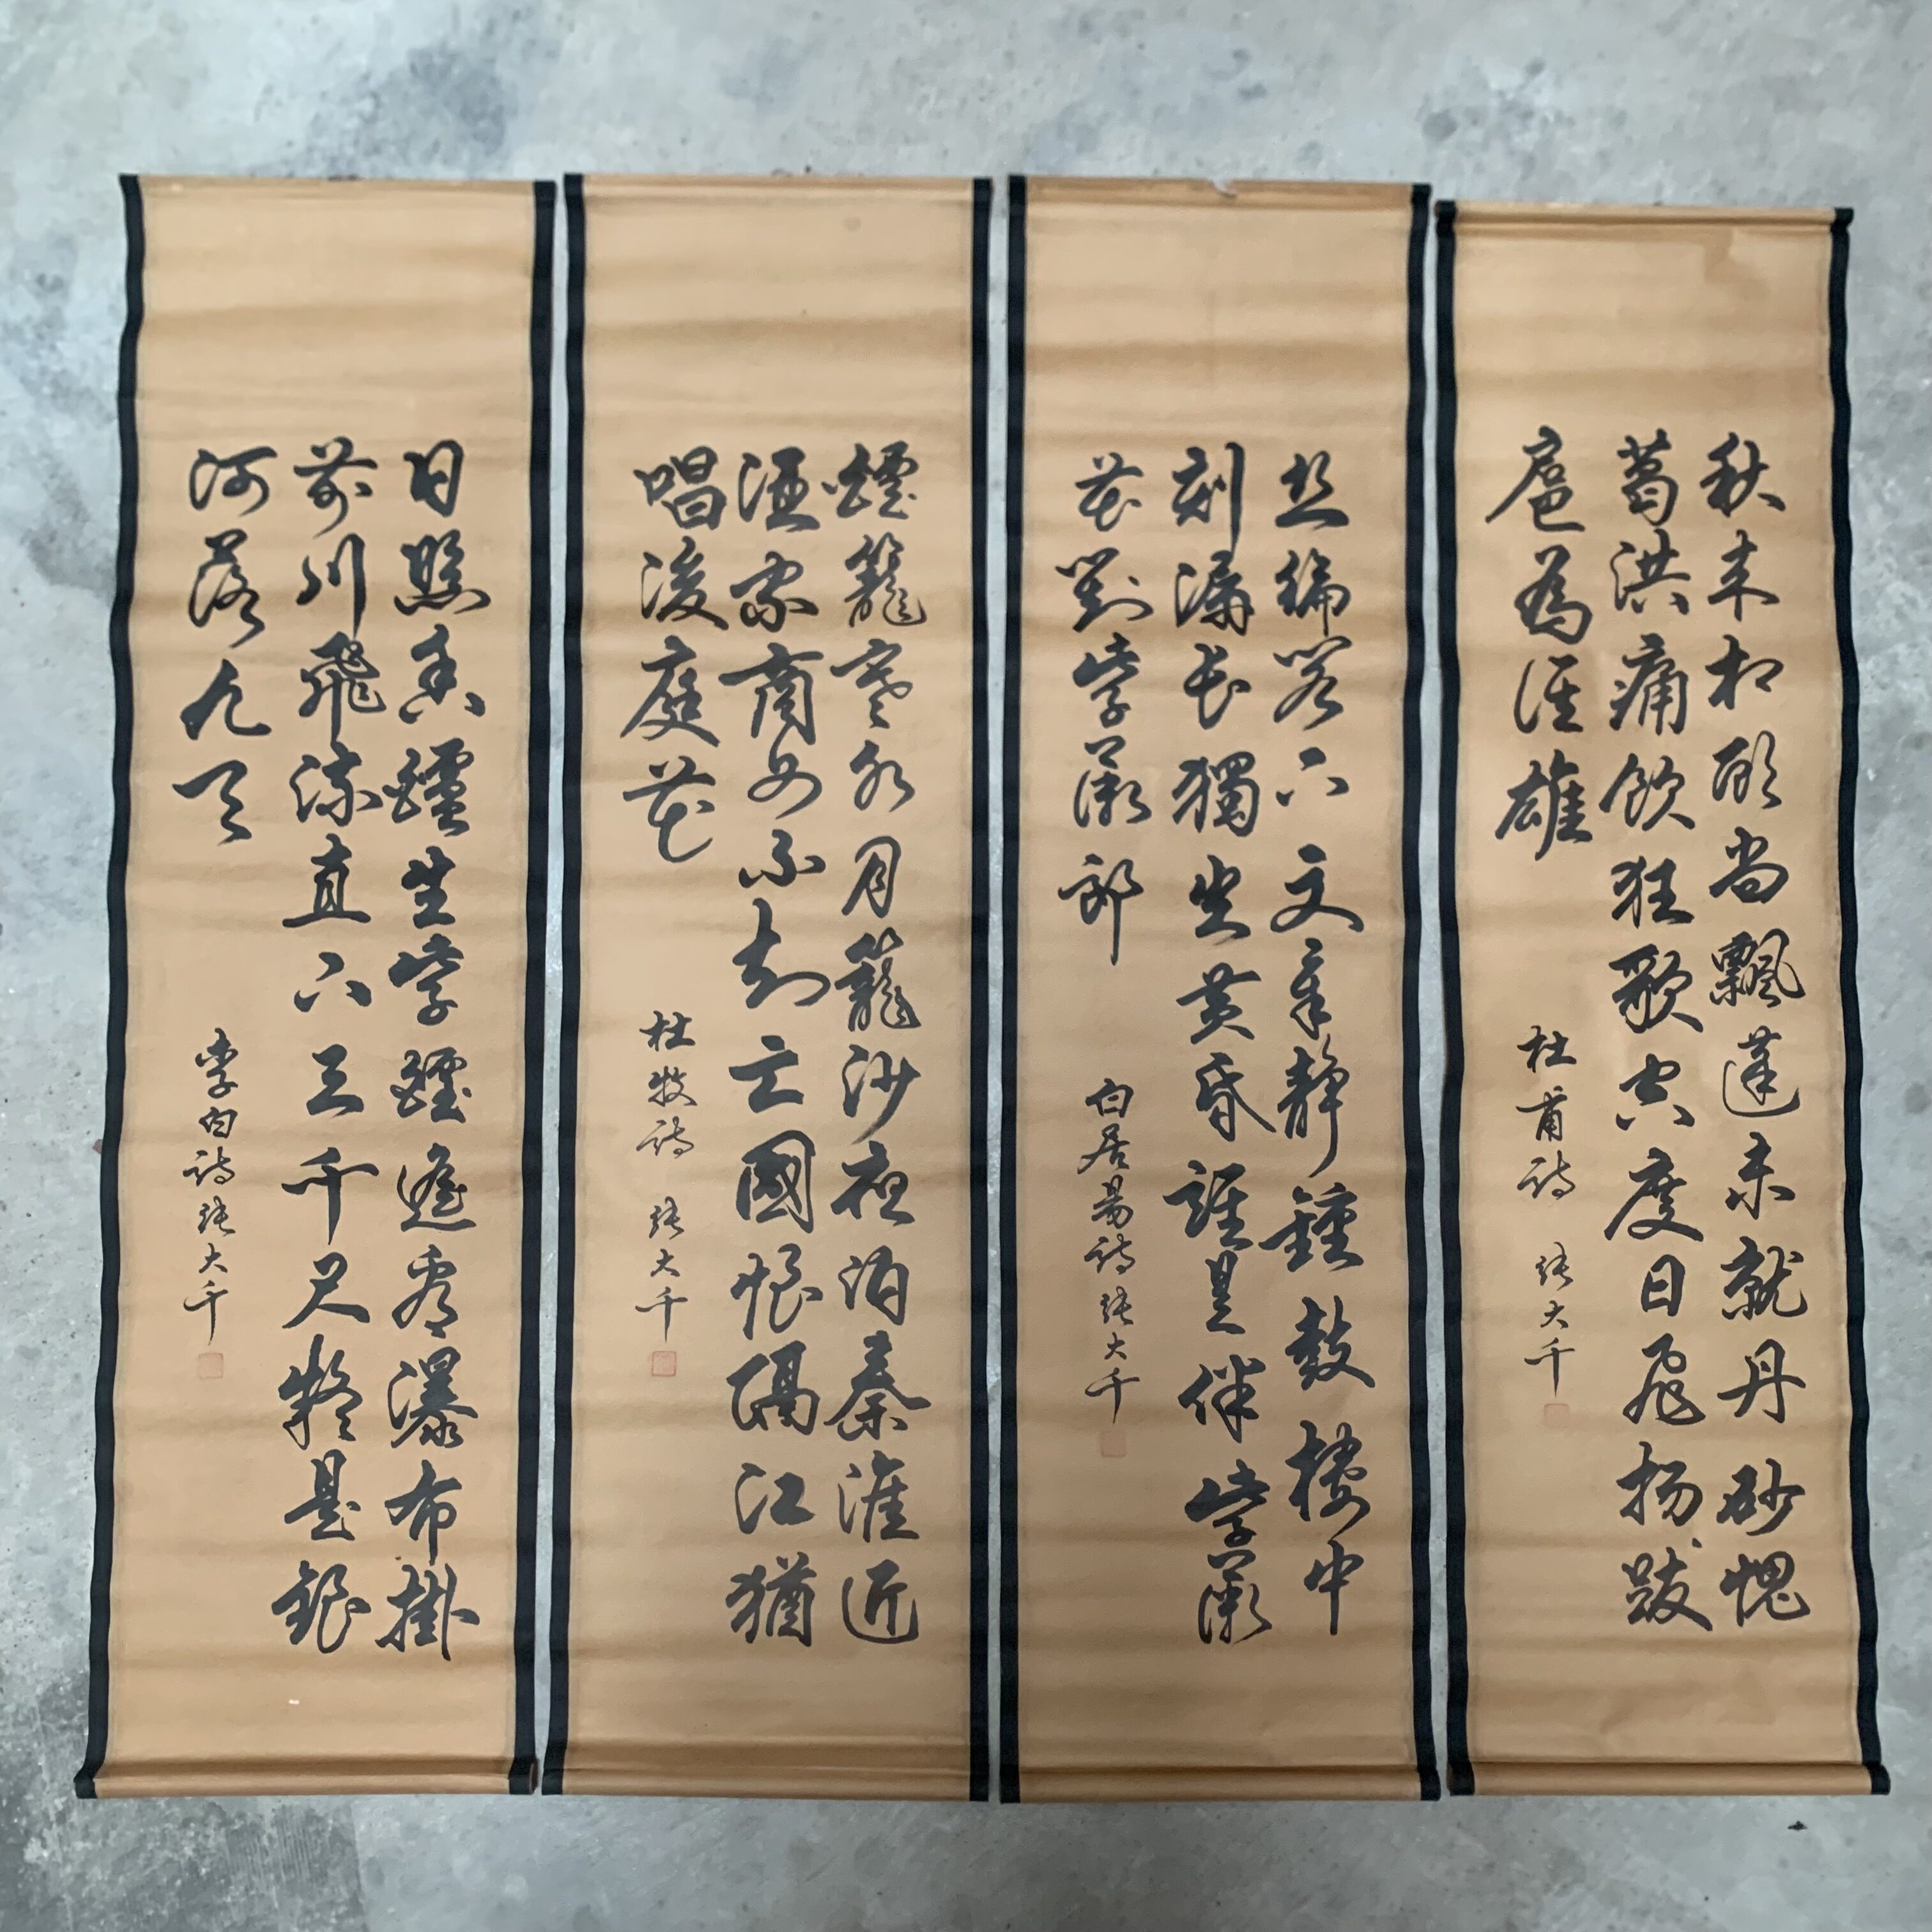 秋来相顧尚飄蓬未就丹砂愧
葛洪痛飲狂歌空度日飛扬跋
扈為誰雄
杜甫詩 張大千
丝綸閣下文章靜鐘鼓樓中
刻漏長獨坐黄昏誰是伴紫薇
花對紫薇郎
白居易詩 張大千
煙籠寒水月籠沙夜泊秦淮近
酒家商女不知亡國恨隔江猶
唱後庭花
杜牧詩 張大千
日照香爐生紫煙遙看瀑布掛
前川飛流直下三千尺疑是銀
河落九天
李白詩 張大千